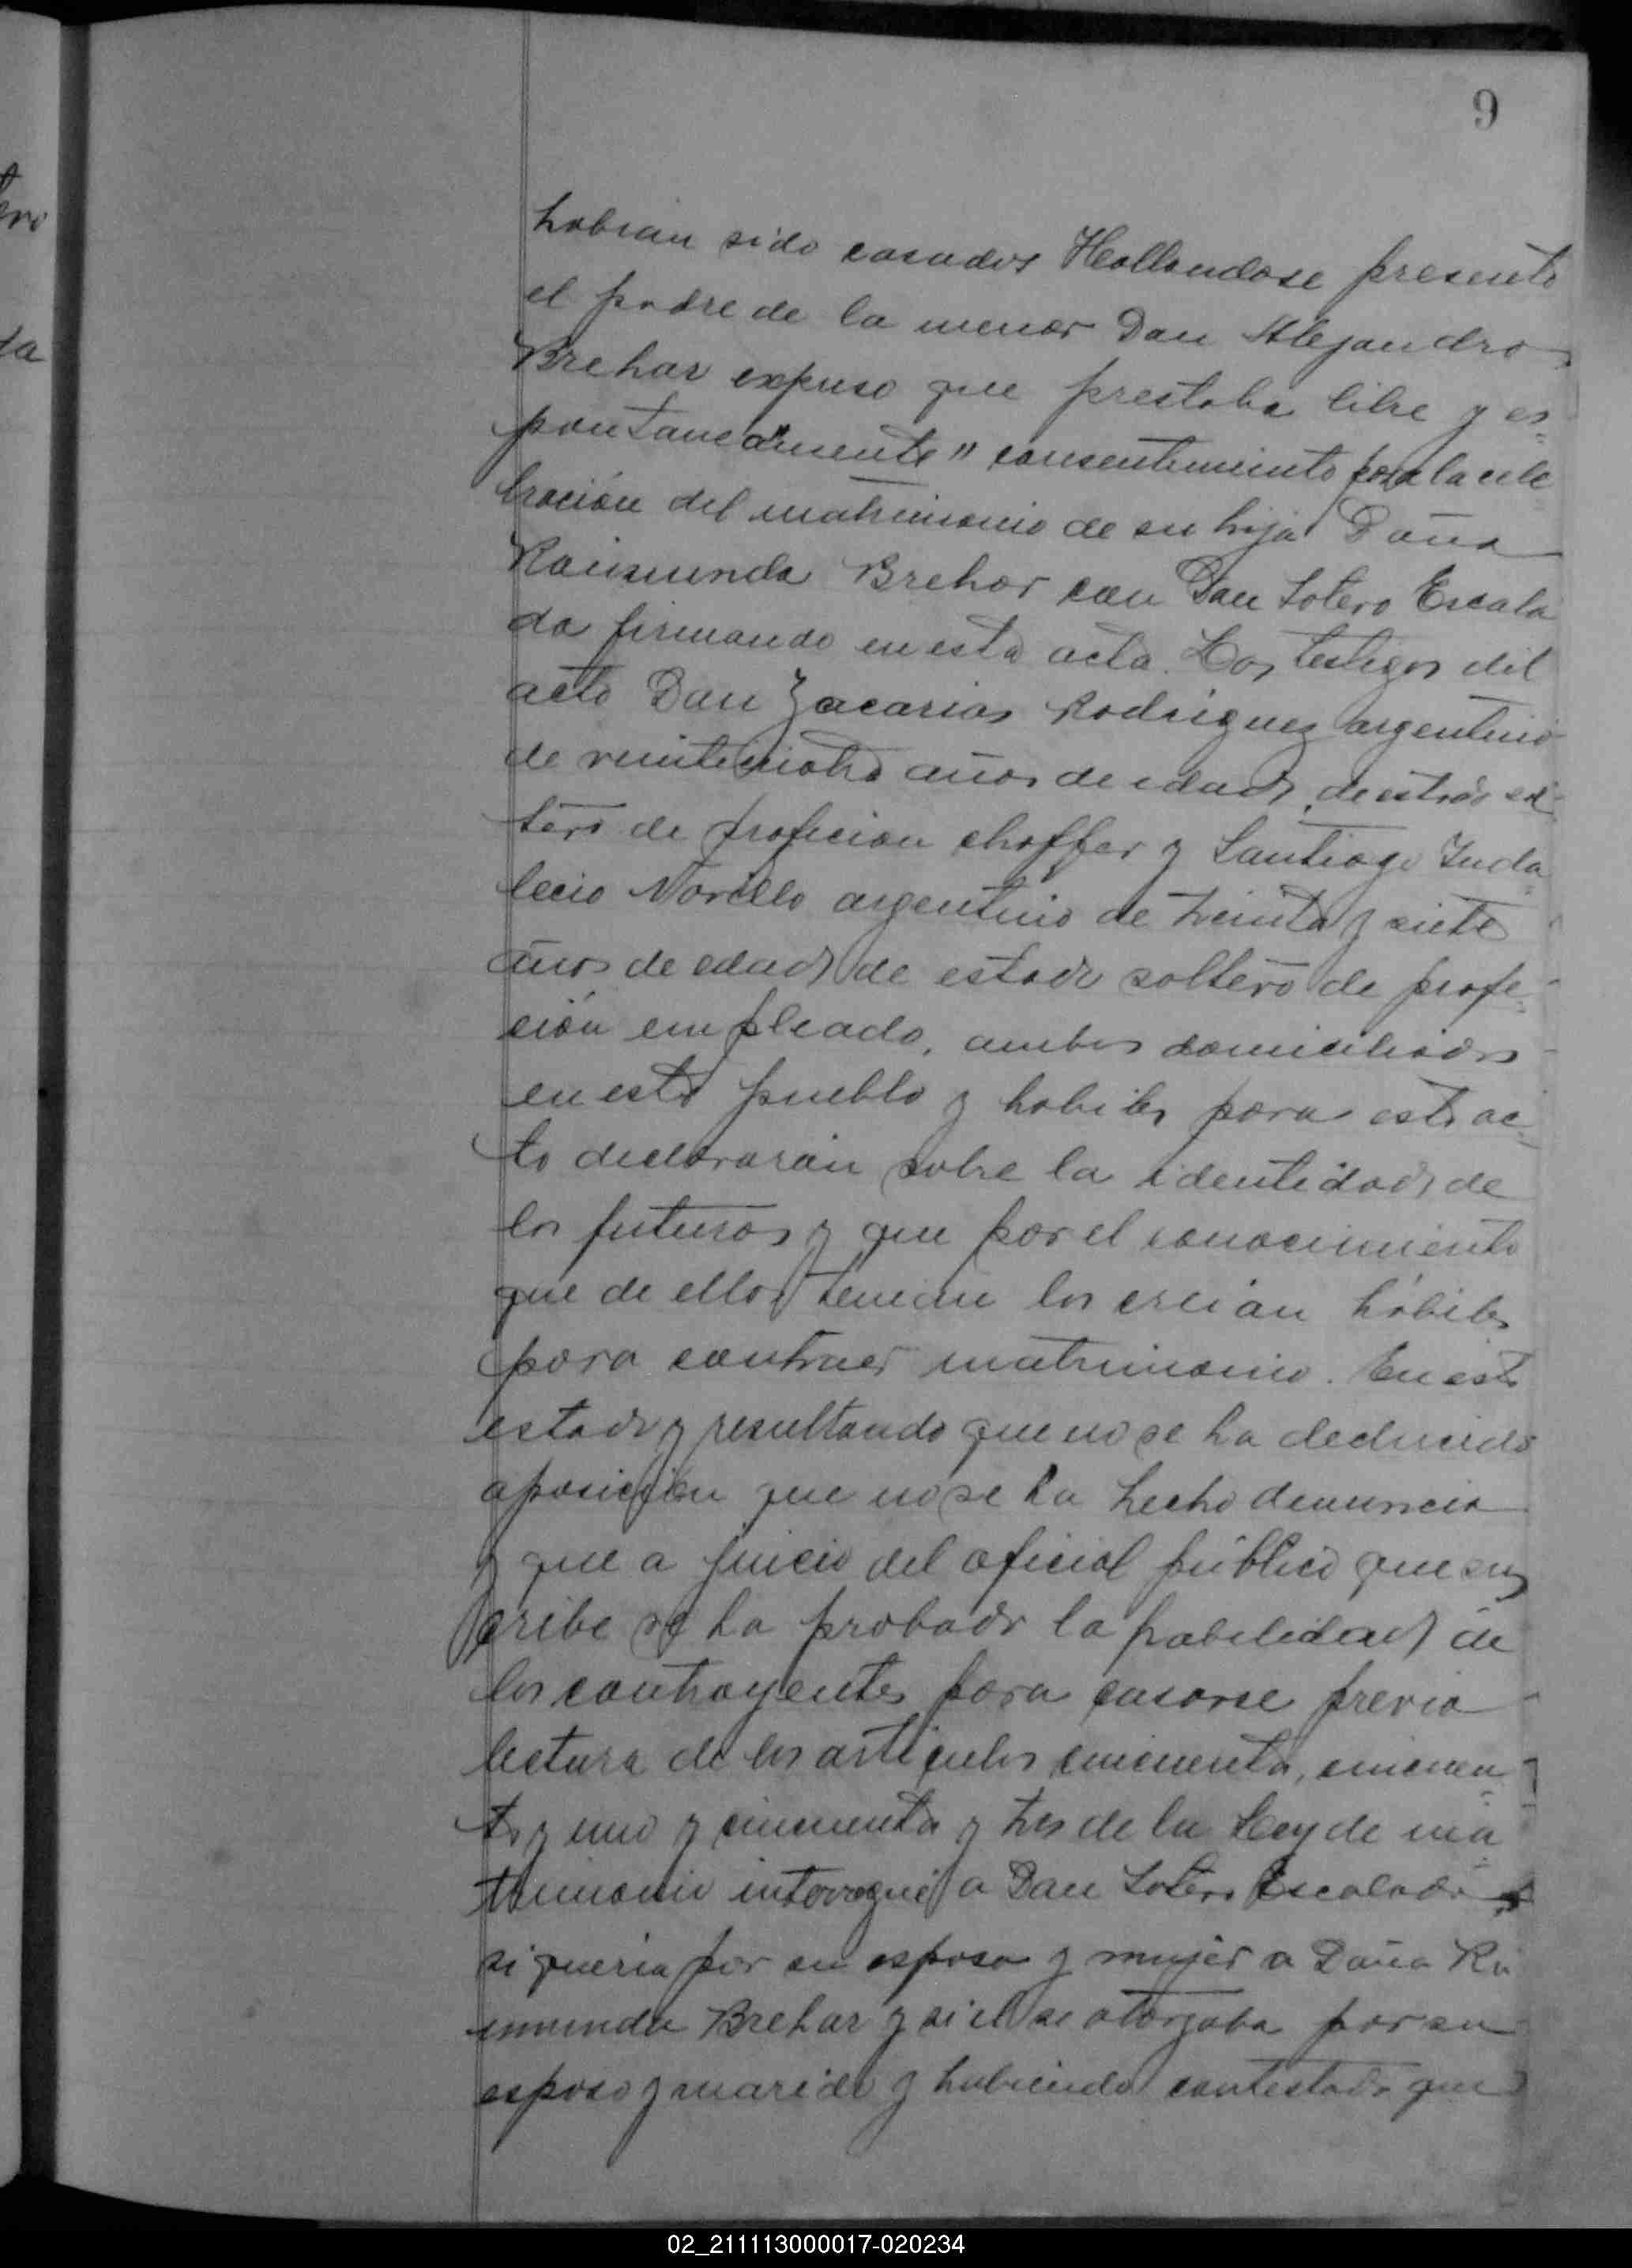 9
habian sido casados Hallandose presente
el padre de la menor Don Alejandro
Brehar expuso que prestaba libre y es=
pontaneamente" consentimiento para la cele
bración del matrimonio de su hija Doña
Raimunda Brehar con Don Sotero Escala
da firmando en esta acta. Los testigos del
acto Don Zacarias Rodriguez argentino
de veinticuatro años de edad, de estado sol-
tero de profecion choffer y Santiago Inda=
lecio Morello argentino de treinta y siete
años de edad de estado soltero de profe=
ción empleado, ambos domiciliados
en este pueblo y habiles para este ac=
to declararán sobre la identidad de
los futuros y que por el conocimiento
que de ellos tenian los creian hábiles
para contraer matrimonio. En este
estado y resultando que no se ha deducido
oposición que no se ha hecho denuncia
y que a juicio del oficial público que sus
cribe se ha probado la habilidad de
los contrayentes para casarse previa
lectura de los articulos cincuenta, cincuen=
ta y uno y cincuenta y tres de la Ley de ma=
trimonio interrogué a Don Sotero Escalada
si queria por su esposa y mujer a Doña Ra
imunda Brehar y si el se otorgaba por su
esposo y marido y habiendo contestado que
02_211113000017-020234